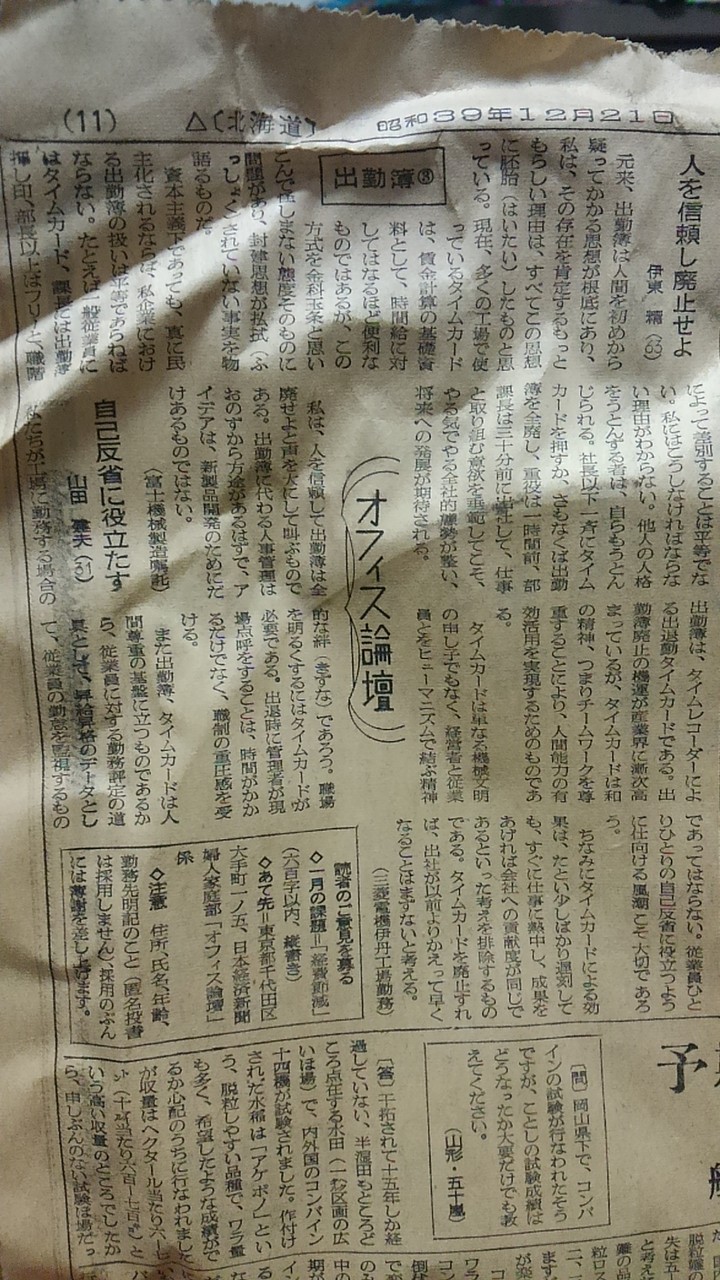 (11)
△(北海道)
昭和39年12月21日
出勤簿⑧
人を信頼し廃止せよ
伊東
元来、出勤簿は人間を初めから
疑ってかかる思想が根底にあり、
私は、その存在を肯定するもっと
もらしい理由は、すべてこの思想
に胚胎（はいたい）したものと思
っている。現在、多くの工場で使
っているタイムカード
は、賃金計算の基礎資
料として、時間給に対
してはなるほど便利な
ものではあるが、この
方式を金科玉条と思い
こんで
しまない態度そのものに
問題があり、封建思想が払拭（ふ
っしょく）されていない事実を物
語るものだ。
資本主義下であっても、真に民
主化されるならば、私企業におけ
る出勤簿の扱いは平等であらねば
ならない。たとえば一般従業員に
はタイムカード、課長には出勤簿
押し印、部長以上はフリーと、職階
によって差別することは平等でな
い。私にはこうしなければならな
い理由がわからない。他人の人格
をうとんずる者は、自らもうとん
じられる。社長以下一斉にタイム
カードを押すか、さもなくば出勤
簿を全廃し、重役は一時間前、部
課長は三十分前に出社して、仕事
と取り組む意欲を垂範してこそ、
やる気でやる全社的態勢が整い、
将来への発展が期待される。
オフィス論壇
私は、人を信頼して出勤簿は全
廃せよと声を大にして叫ぶもので
ある。出勤簿に代わる人事管理は
おのずから方途があるはずで、ア
イデアは、新製品開発のためにだ
けあるものではない。
（富士機械製造嘱託）
自己反省に役立たす
山田
私たちが工場に勤務する場合の
出勤簿は、タイムレコーダーによ
る出退勤タイムカードである。出
勤簿廃止の機運が産業界に漸次高
まっているが、タイムカードは和
の精神、つまりチームワークを尊
重することにより、人間能力の有
効活用を実現するためのものであ
る。
タイムカードは単なる機械文明
の申し子でもなく、経営者と従業
員とをヒューマニズムで結ぶ精神
的な絆（きずな）であろう。職場
を明るくするにはタイムカードが
必要である。出退時に管理者が現
場点呼をすることは、時間がかか
るだけでなく、職制の重圧感を受
ける。
また出勤簿、タイムカードは人
間尊重の基盤に立つものであるか
ら、従業員に対する勤務評定の道
具として、昇給昇格のデータとし
て、従業員の勤怠を監視するもの
であってはならない。従業員ひと
りひとりの自己反省に役立つよう
に仕向ける風潮こそ大切であろ
う。
ちなみにタイムカードによる効
果は、たとい少しばかり遅刻して
も、すぐに仕事に熱中し、成果を
あければ会社への貢献度が同じで
あるといった考えを排除するもの
である。タイムカードを廃止すれ
ば、出社が以前よりかえって早く
なることはまずないと考える。
（三菱電機伊丹工場勤務）
読者のご意見を募る
◇一月の課題＝「経費節減」
（六百字以内、縦書き）
◇あて先＝東京都千代田区
大手町一ノ五、日本経済新聞
婦人家庭部「オフィス論壇」
係
◇注意　住所、氏名、年齢、
勤務先明記のこと（匿名投書
は採用しません）、採用のぶん
には薄謝を差し上げます。
予
〔問〕岡山県下で、コンバ
インの試験が行なわれたそう
ですが、ことしの試験成績は
どうなったか大要だけでも教
えてください。
（山形・五十嵐）
〔答〕干拓されて十五年しか経
過していない、半湿田もところど
ころ点在する水田（一む区画の広
いほ場）で、内外国のコンバイン
十四機が試験されました。作付け
された水稲は「アケボノ」とい
う、脱粒しやすい品種で、ワラ量
も多く、希望したような成績がで
るか心配のうちに行なわれました
が収量はヘクタール当たり六―七
いう高い収量のところでしたか
ら、申しぶんのない試験ほ場だっ